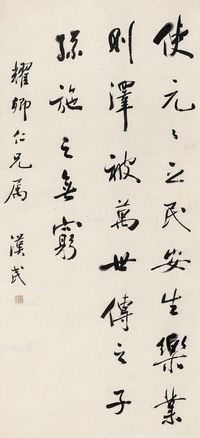 使元〻之民安生樂業
則澤被萬世傳之子
孫施之無窮
耀卿仁兄属
漢民